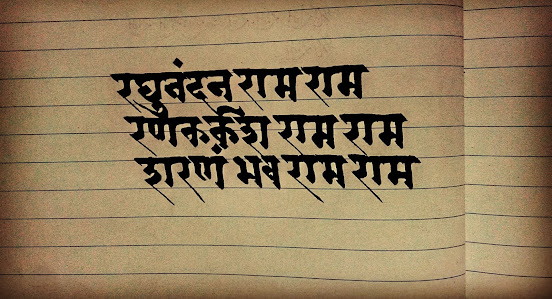 रघुनंदन राम राम
रणैककर्कश राम राम
शरणं भव राम राम